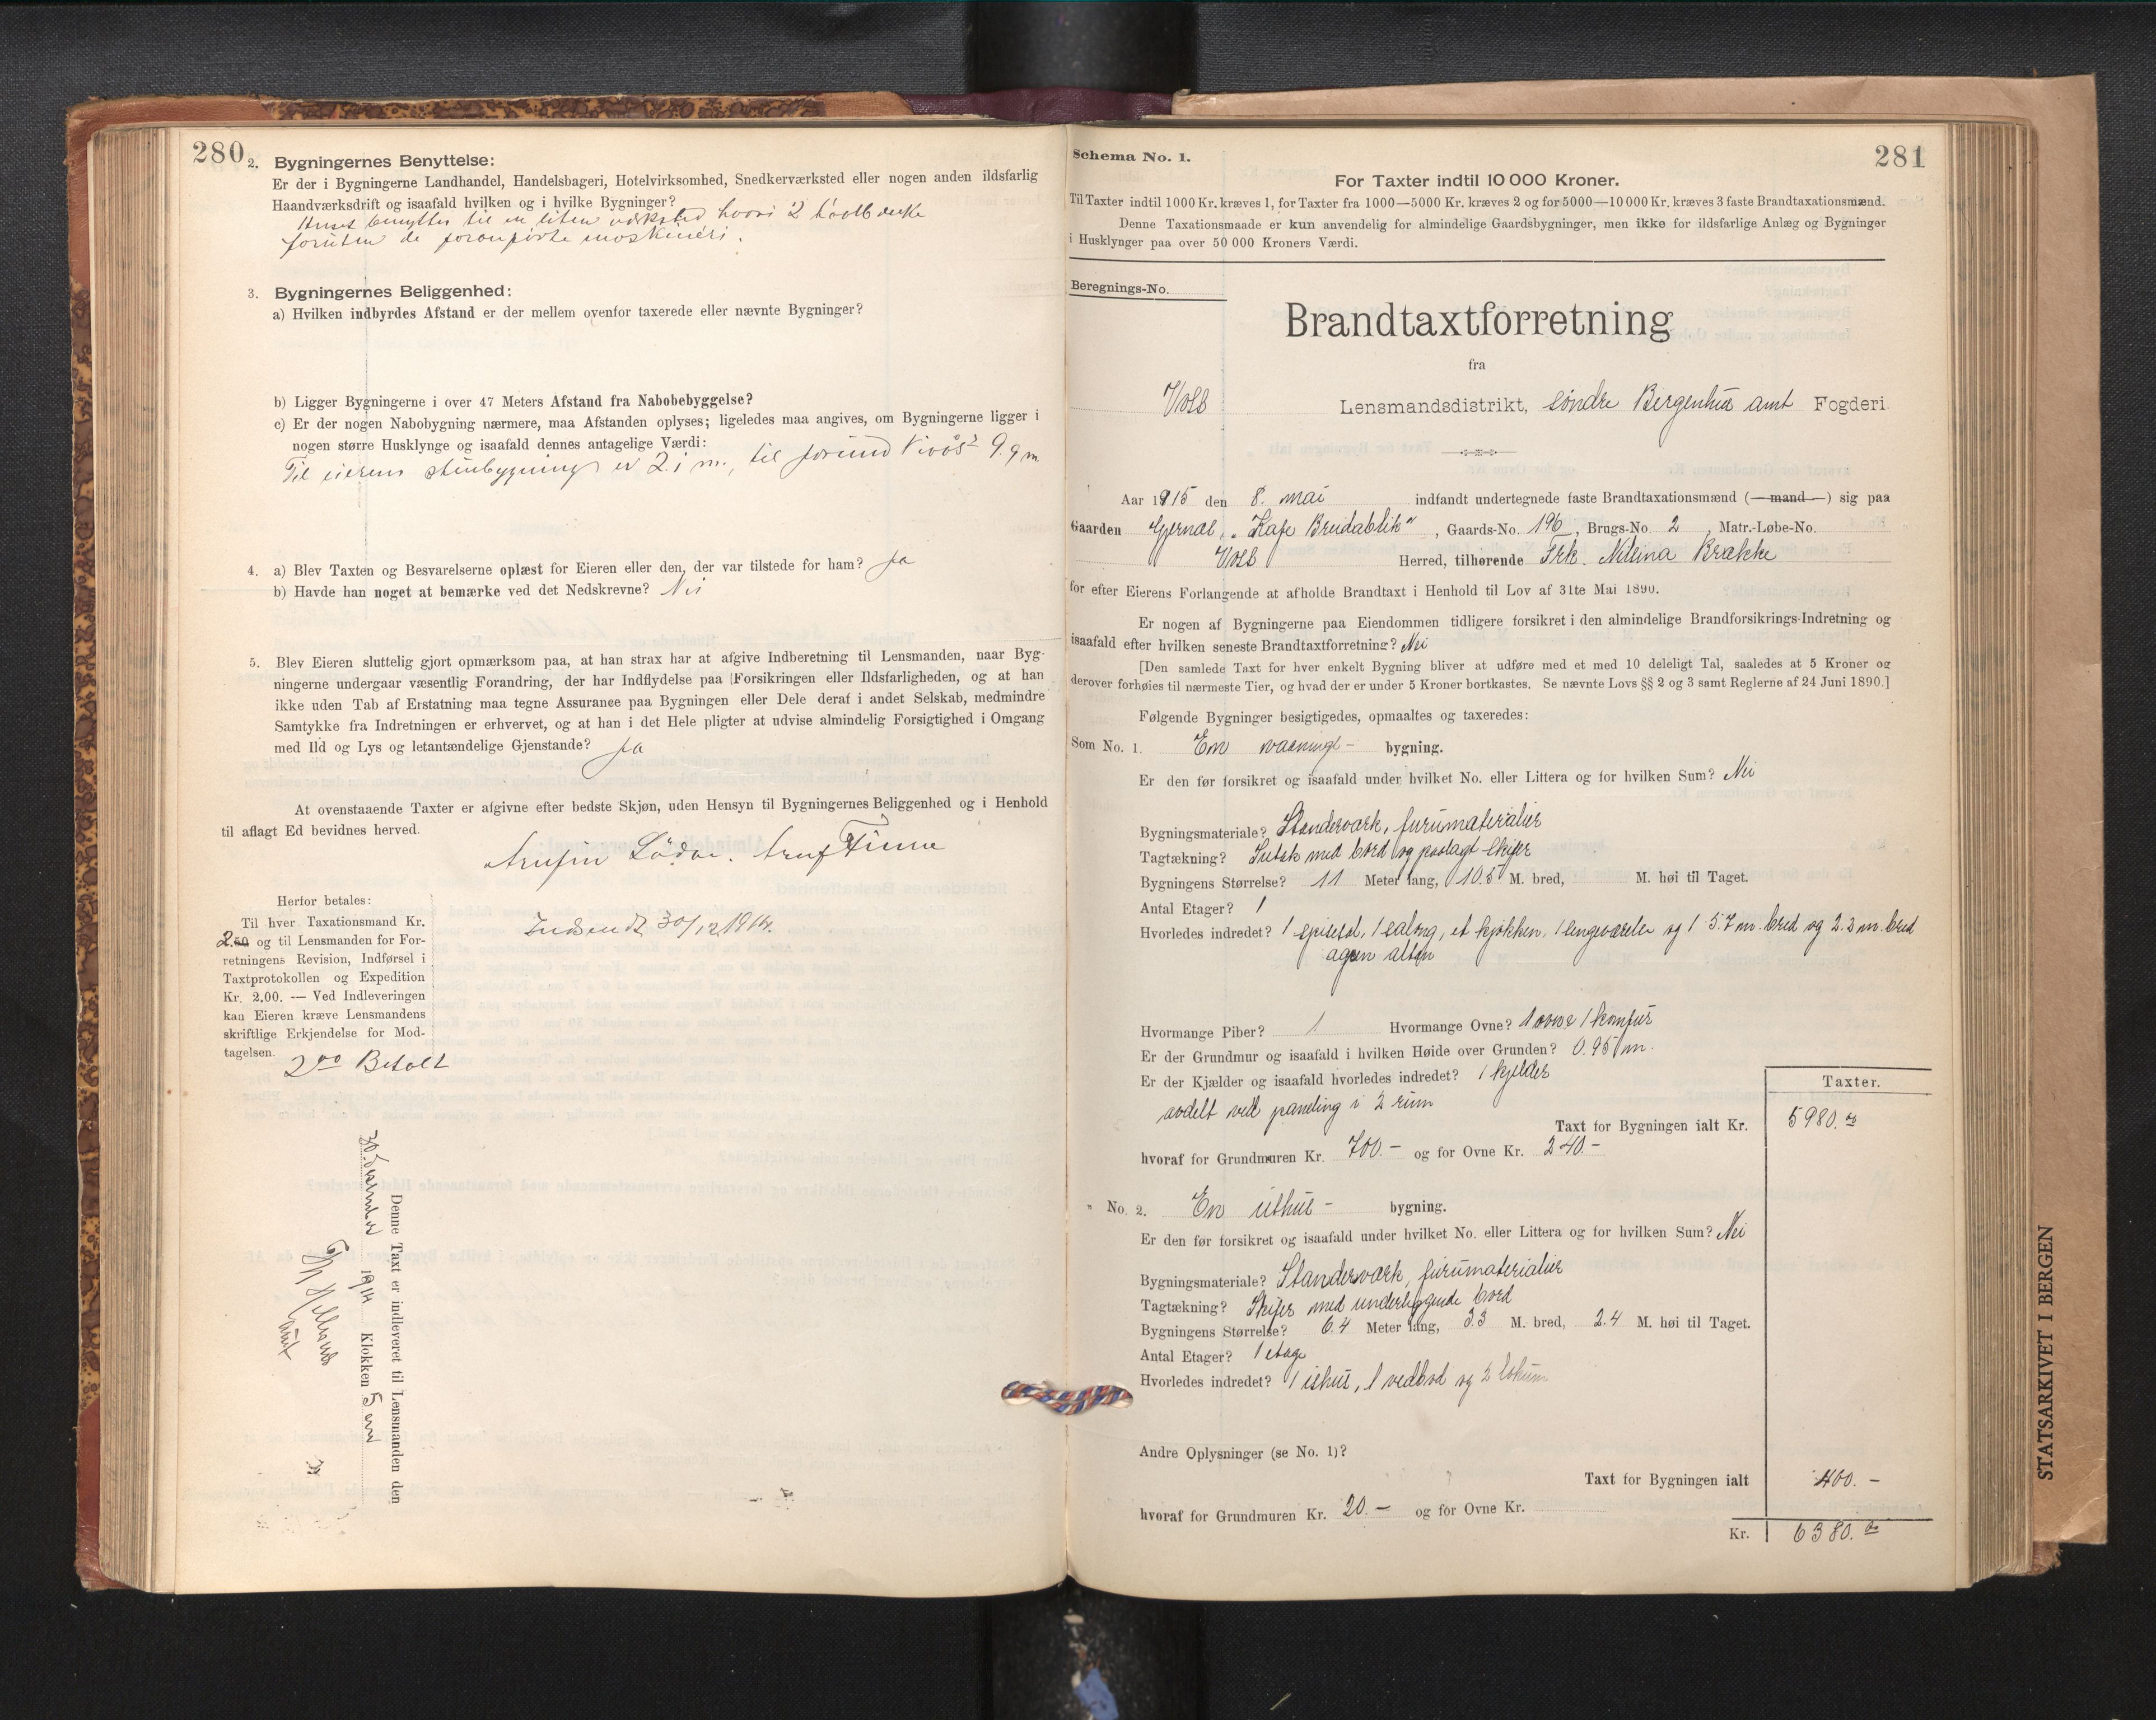 280
2. Bygningernes Benyttelse:
Er der i Bygningerne Landhandel, Handelsbageri, Hotelvirksomhed, Snedkerværksted eller nogen anden ildsfarlig
Haandværksdrift og isaafald hvilken og i hvilke Bygninger?
Huset benyttes til en liten verksted hvori 2
foruten de foranførte maskineri.
3. Bygningernes Beliggenhed:
a) Hvilken indbyrdes Afstand er der mellem ovenfor taxerede eller nævnte Bygninger?
b) Ligger Bygningerne i over 47 Meters Afstand fra Nabobebyggelse?
c) Er der nogen Nabobygning nærmere, maa Afstanden oplyses; ligeledes maa angives, om Bygningerne ligger i
nogen større Husklynge og isaafald dennes antagelige Værdi:
Til eierens stuebygning er 2.1 m., til 9.9 m
4. a) Blev Taxten og Besvarelserne oplæst for Eieren eller den, der var tilstede for ham? Ja
b) Havde han noget at bemærke ved det Nedskrevne? Nei
5. Blev Eieren sluttelig gjort opmærksom paa, at han strax har at afgive Indberetning til Lensmanden, naar Byg-
ningerne undergaar væsentlig Forandring, der har Indflydelse paa Forsikringen eller Ildsfarligheden, og at han
ikke uden Tab af Erstatning maa tegne Assurance paa Bygningen eller Dele deraf i andet Selskab, medmindre
Samtykke fra Indretningen er erhvervet, og at han i det Hele pligter at udvise almindelig Forsigtighed i Omgang
med Ild og Lys og letantændelige Gjenstande? Ja
At ovenstaaende Taxter er afgivne efter bedste Skjøn, uden Hensyn til Bygningernes Beliggenhed og i Henhold
til aflagt Ed bevidnes herved.
Finne
Herfor betales:
Til hver Taxationsmand Kr.
2.50 og til Lensmanden for For-
retningens Revision, Indførsel i
Taxtprotokollen og Expedition
Kr. 2.00. — Ved Indleveringen
kan Eieren kræve Lensmandens
skriftlige Erkjendelse for Mod-
tagelsen.
Indsendt 30/12 1914.
2 00 Betalt
Denne Taxt er indleveret til Lensmanden den
30. december 1914 Klokken 5 em
281
Schema No. 1.
For Taxter indtil 10 000 Kroner.
Til Taxter indtil 1000 Kr. kræves 1, for Taxter fra 1000—5000 Kr. kræves 2 og for 5000—10 000 Kr. kræves 3 faste Brandtaxationsmænd.
Denne Taxationsmaade er kun anvendelig for almindelige Gaardsbygninger, men ikke for ildsfarlige Anlæg og Bygninger
i Husklynger paa over 50 000 Kroners Værdi.
Beregnings-No.
Brandtaxtforretning
fra
Voss Lensmandsdistrikt, søndre Bergenhus amt Fogderi
Aar 1915 den 8. mai indfandt undertegnede faste Brandtaxationsmænd (—mand—) sig paa
Gaarden Gjernæs, „Kafe Breidablik“, Gaards-No. 196, Brugs-No. 2, Matr.-Løbe-No.
Voss Herred, tilhørende Frk. Nilsina Brække
for efter Eierens Forlangende at afholde Brandtaxt i Henhold til Lov af 31te Mai 1890.
Er nogen af Bygningerne paa Eiendommen tidligere forsikret i den almindelige Brandforsikrings-Indretning og
isaafald efter hvilken seneste Brandtaxtforretning? Nei
[Den samlede Taxt for hver enkelt Bygning bliver at udføre med et med 10 deleligt Tal, saaledes at 5 Kroner og
derover forhøies til nærmeste Tier, og hvad der er under 5 Kroner bortkastes. Se nævnte Lovs §§ 2 og 3 samt Reglerne af 24 Juni 1890.]
Følgende Bygninger besigtigedes, opmaaltes og taxeredes:
Som No. 1. En vaanings- bygning.
Er den før forsikret og isaafald under hvilket No. eller Littera og for hvilken Sum? Nei
Bygningsmateriale? Standerværk, furumaterialier
Tagtækning? Sutak med bord og paalagt skifer
Bygningens Størrelse? 11 Meter lang, 10.5 M. bred, M. høi til Taget.
Antal Etager? 1
Hvorledes indredet? 1 spisesal, 1 salong, et kjøkken, 1 sengeværelse og 1 5.7 m. bred og 2.3 m. bred
aapen altan
Hvormange Piber? 1 Hvormange Ovne? 1 ovne 1 komfur
Er der Grundmur og isaafald i hvilken Høide over Grunden? 0.95 m.
Er der Kjælder og isaafald hvorledes indredet? 1 kjelder
avdelt ved paneling i 2 rum
Taxter.
Taxt for Bygningen ialt Kr. 5980.00
hvoraf for Grundmuren Kr. 700.- og for Ovne Kr. 240.-
„ No. 2. En uthus- bygning.
Er den før forsikret og isaafald under hvilket No. eller Littera og for hvilken Sum? Nei
Bygningsmateriale? Standerværk, furumaterialier
Tagtækning? Skifer med underliggende bord
Bygningens Størrelse? 6.4 Meter lang, 3.3 M. bred, 2.4 M. høi til Taget.
Antal Etager? 1 etage
Hvorledes indredet? 1 ishus, 1 vedbod og 2 lokum
Andre Oplysninger (se No. 1)?
Taxt for Bygningen ialt 400.-
hvoraf for Grundmuren Kr. 20.- og for Ovne Kr.
Kr. 6380.00
STATSARKIVET I BERGEN